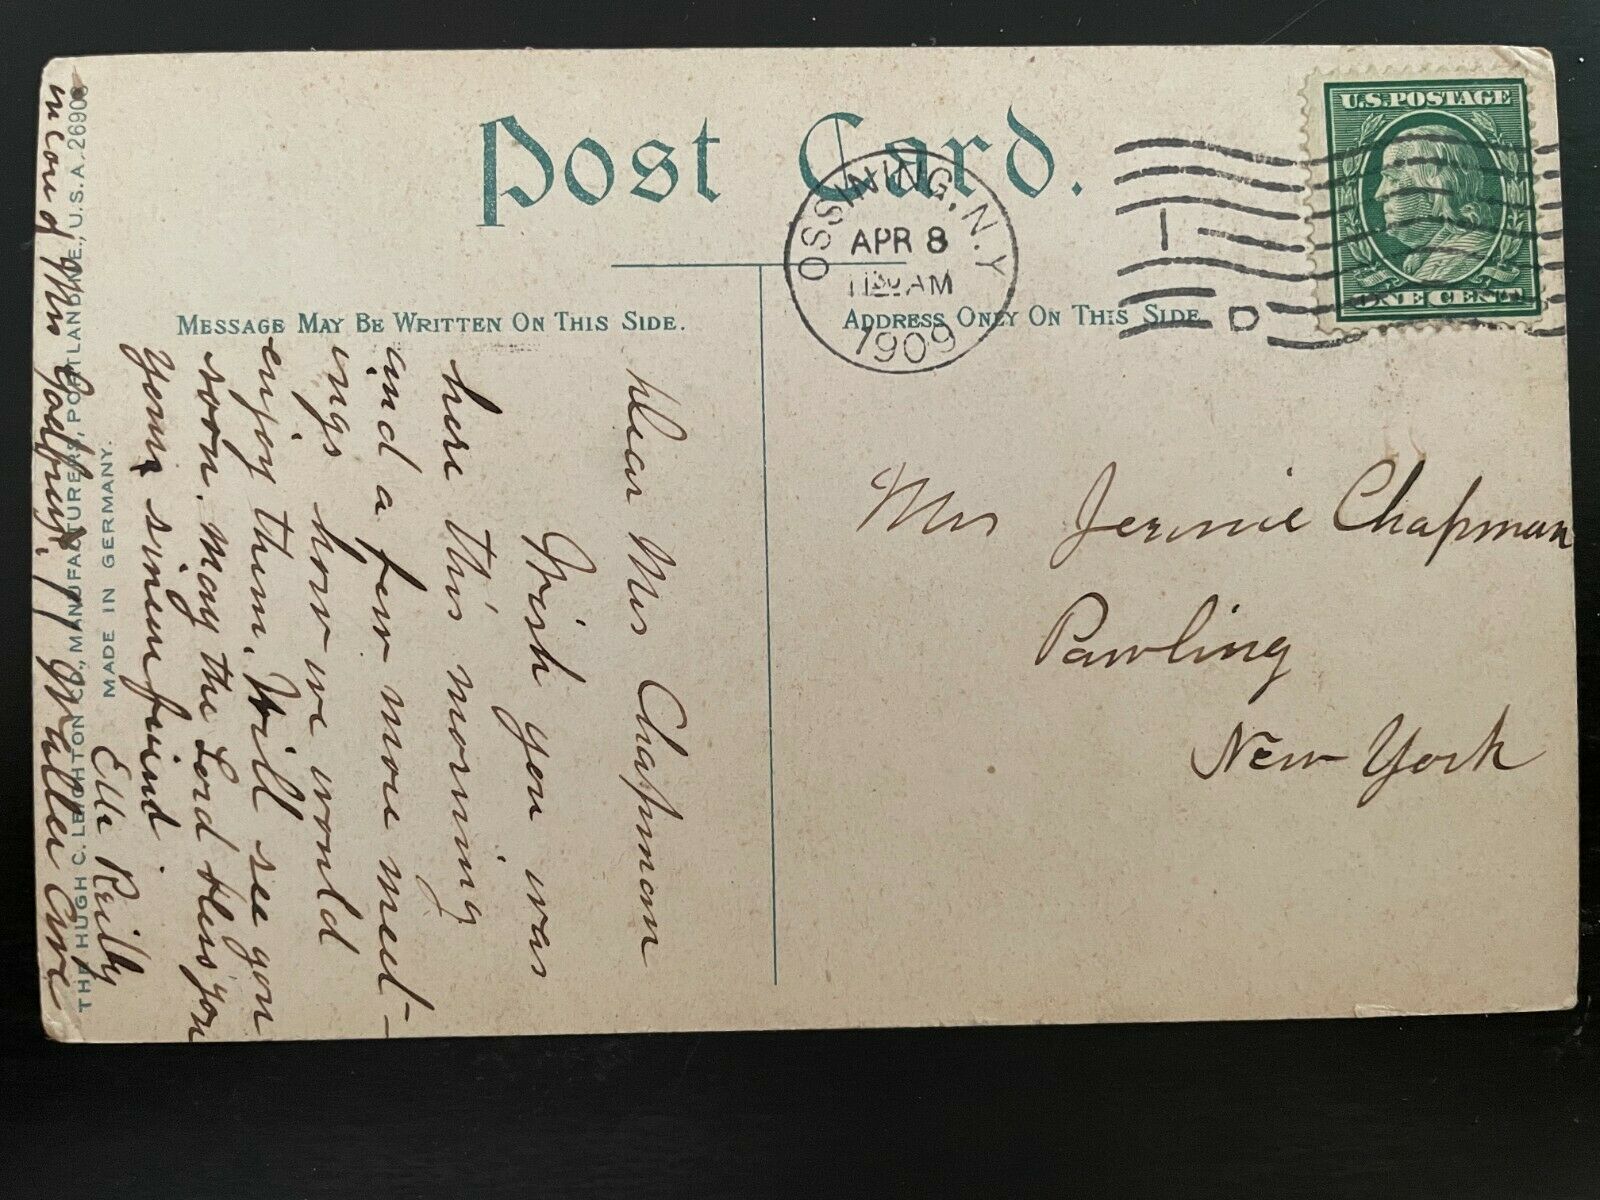 Post Card.
MESSAGE MAY BE WRITTEN ON THIS SIDE.
ADDRESS ONLY ON THIS SIDE.
U.S. POSTAGE
ONE CENT
OSSINING, N.Y.
APR 8
11 30 AM
1909
1
D
Mrs Jennie Chapman
Pawling
New York
Dear Mrs Chapman
Wish you was
here this morning
and a few more meet-
ings how we would
enjoy them. Will see you
soon. may the Lord bless you
your sincere friend
Ella Reilly
in care of Mrs Godfrey, 11 Waller Ave
THE HUGH C. LEIGHTON CO., MANUFACTURERS, PORTLAND, ME., U.S.A. 26908
MADE IN GERMANY.